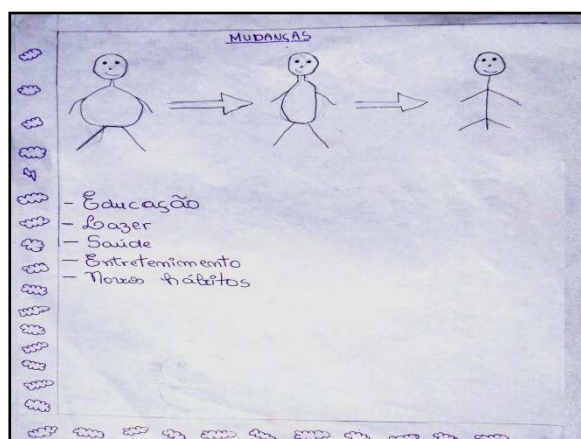 MUDANÇAS
- Educação
- Lazer
- Saúde
- Entretenimento
- Novos hábitos